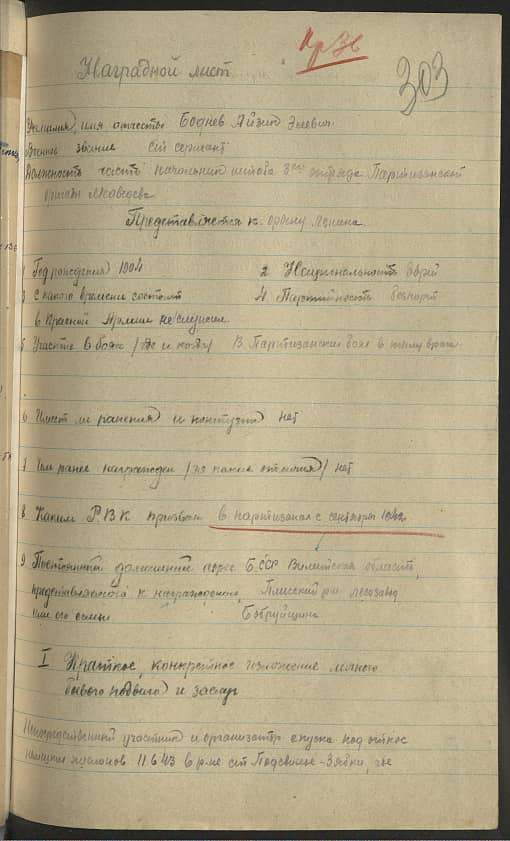 Пр 36
303
Наградной лист
Фамилия, имя отчество Боднев Айзик Элевич
Военное звание ст сержант
Должность часть начальник штаба 3го отряда Партизанской
бригады Медведева
Представляется к ордену Ленина
1 Год рождения 1904
2 Национальность еврей
3 с какого времени состоит
4 Партийность беспарт
в Красной Армии не служил
5 Участие в боях /где и когда/ В Партизанских боях в тылу врага
6 Имеет ли ранения и контузии нет
7 Чем ранее награжден /за какие отличия/ нет
8 Каким Р.В.К призван в партизанах с сентября 1942
9 Постоянный домашний адрес БССР Вилейская область,
представляемого к награждению, Плисский р-н лесозавод
или его семьи
I Краткое, конкретное изложение личного
боевого подвига и заслуг
Непосредственный участник и организатор спуска под откос
немецких эшелонов 11.6.43 в р-не ст Подсвилье-Зябки, где